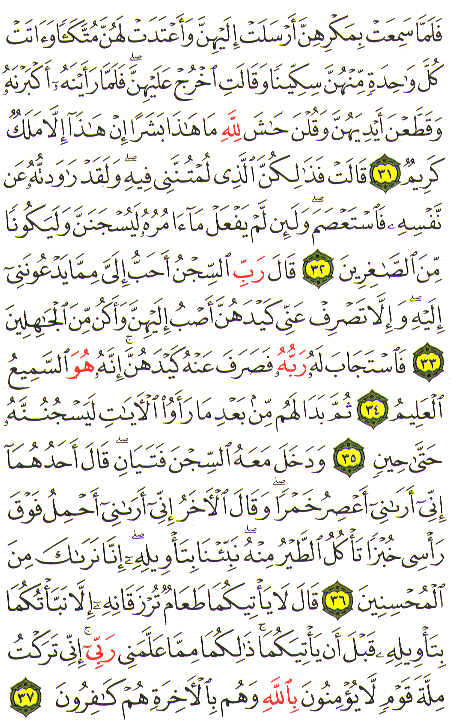 فَلَمَّا سَمِعَتۡ بِمَكۡرِهِنَّ أَرۡسَلَتۡ إِلَيۡهِنَّ وَأَعۡتَدَتۡ لَهُنَّ مُتَّكَـٔٗا وَءَاتَتۡ
كُلَّ وَٰحِدَةٖ مِّنۡهُنَّ سِكِّينٗا وَقَالَتِ ٱخۡرُجۡ عَلَيۡهِنَّۖ فَلَمَّا رَأَيۡنَهُۥٓ أَكۡبَرۡنَهُۥ
وَقَطَّعۡنَ أَيۡدِيَهُنَّ وَقُلۡنَ حَٰشَ لِلَّهِ مَا هَٰذَا بَشَرًا إِنۡ هَٰذَآ إِلَّا مَلَكٞ
كَرِيمٞ ٣١ قَالَتۡ فَذَٰلِكُنَّ ٱلَّذِي لُمۡتُنَّنِي فِيهِۖ وَلَقَدۡ رَٰوَدتُّهُۥ عَن
نَّفۡسِهِۦ فَٱسۡتَعۡصَمَۖ وَلَئِن لَّمۡ يَفۡعَلۡ مَآ ءَامُرُهُۥ لَيُسۡجَنَنَّ وَلَيَكُونٗا
مِّنَ ٱلصَّٰغِرِينَ ٣٢ قَالَ رَبِّ ٱلسِّجۡنُ أَحَبُّ إِلَيَّ مِمَّا يَدۡعُونَنِيٓ
إِلَيۡهِۖ وَإِلَّا تَصۡرِفۡ عَنِّي كَيۡدَهُنَّ أَصۡبُ إِلَيۡهِنَّ وَأَكُن مِّنَ ٱلۡجَٰهِلِينَ
٣٣ فَٱسۡتَجَابَ لَهُۥ رَبُّهُۥ فَصَرَفَ عَنۡهُ كَيۡدَهُنَّۚ إِنَّهُۥ هُوَ ٱلسَّمِيعُ
ٱلۡعَلِيمُ ٣٤ ثُمَّ بَدَا لَهُم مِّنۢ بَعۡدِ مَا رَأَوُاْ ٱلۡأٓيَٰتِ لَيَسۡجُنُنَّهُۥ
حَتَّىٰ حِينٖ ٣٥ وَدَخَلَ مَعَهُ ٱلسِّجۡنَ فَتَيَانِۖ قَالَ أَحَدُهُمَآ
إِنِّيٓ أَرَىٰنِيٓ أَعۡصِرُ خَمۡرٗاۖ وَقَالَ ٱلۡأٓخَرُ إِنِّيٓ أَرَىٰنِيٓ أَحۡمِلُ فَوۡقَ
رَأۡسِي خُبۡزٗا تَأۡكُلُ ٱلطَّيۡرُ مِنۡهُۖ نَبِّئۡنَا بِتَأۡوِيلِهِۦٓۖ إِنَّا نَرَىٰكَ مِنَ
ٱلۡمُحۡسِنِينَ ٣٦ قَالَ لَا يَأۡتِيكُمَا طَعَامٞ تُرۡزَقَانِهِۦٓ إِلَّا نَبَّأۡتُكُمَا
بِتَأۡوِيلِهِۦ قَبۡلَ أَن يَأۡتِيَكُمَاۚ ذَٰلِكُمَا مِمَّا عَلَّمَنِي رَبِّيٓۚ إِنِّي تَرَكۡتُ
مِلَّةَ قَوۡمٖ لَّا يُؤۡمِنُونَ بِٱللَّهِ وَهُم بِٱلۡأٓخِرَةِ هُمۡ كَٰفِرُونَ ٣٧